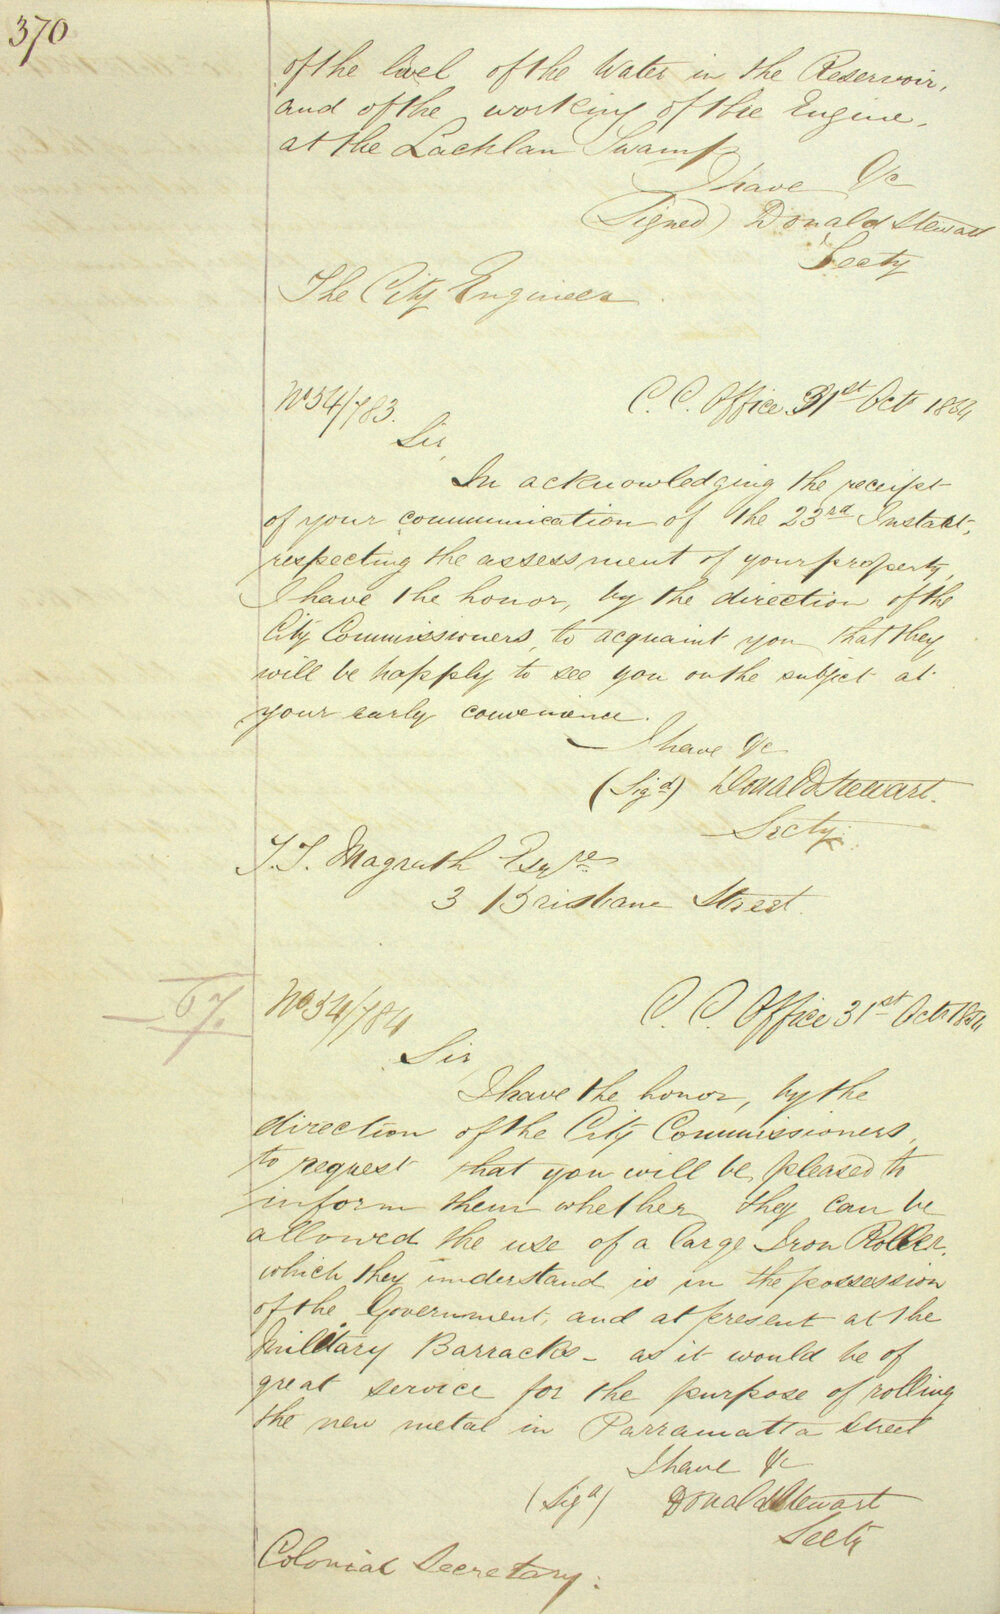 370
of the level of the Water in the Reservoir,
and of the working of the Engine,
at the Lachlan Swamp
I have &c
(Signed) Donald Stewart
Secty
The City Engineer.
No 54/783.
C. C. Office 31st Oct 1854
Sir,
In acknowledging the receipt
of your communication of the 23rd Instant,
respecting the assessment of your property,
I have the honor, by the direction of the
City Commissioners, to acquaint you that they
will be happy to see you on the subject at
your early convenience.
I have &c
(Sigd) Donald Stewart.
Secty.
Esqre
3 Brisbane Street.
67.
No 54/784
C. C. Office 31st Oct 1854
Sir,
I have the honor, by the
direction of the City Commissioners,
to request that you will be pleased to
inform them whether they can be
allowed the use of a large Iron Roller,
which they understand is in the possession
of the Government, and at present at the
Military Barracks - as it would be of
great service for the purpose of rolling
the new metal in Parramatta Street
I have &c
(Sigd) Donald Stewart
Secty
Colonial Secretary.